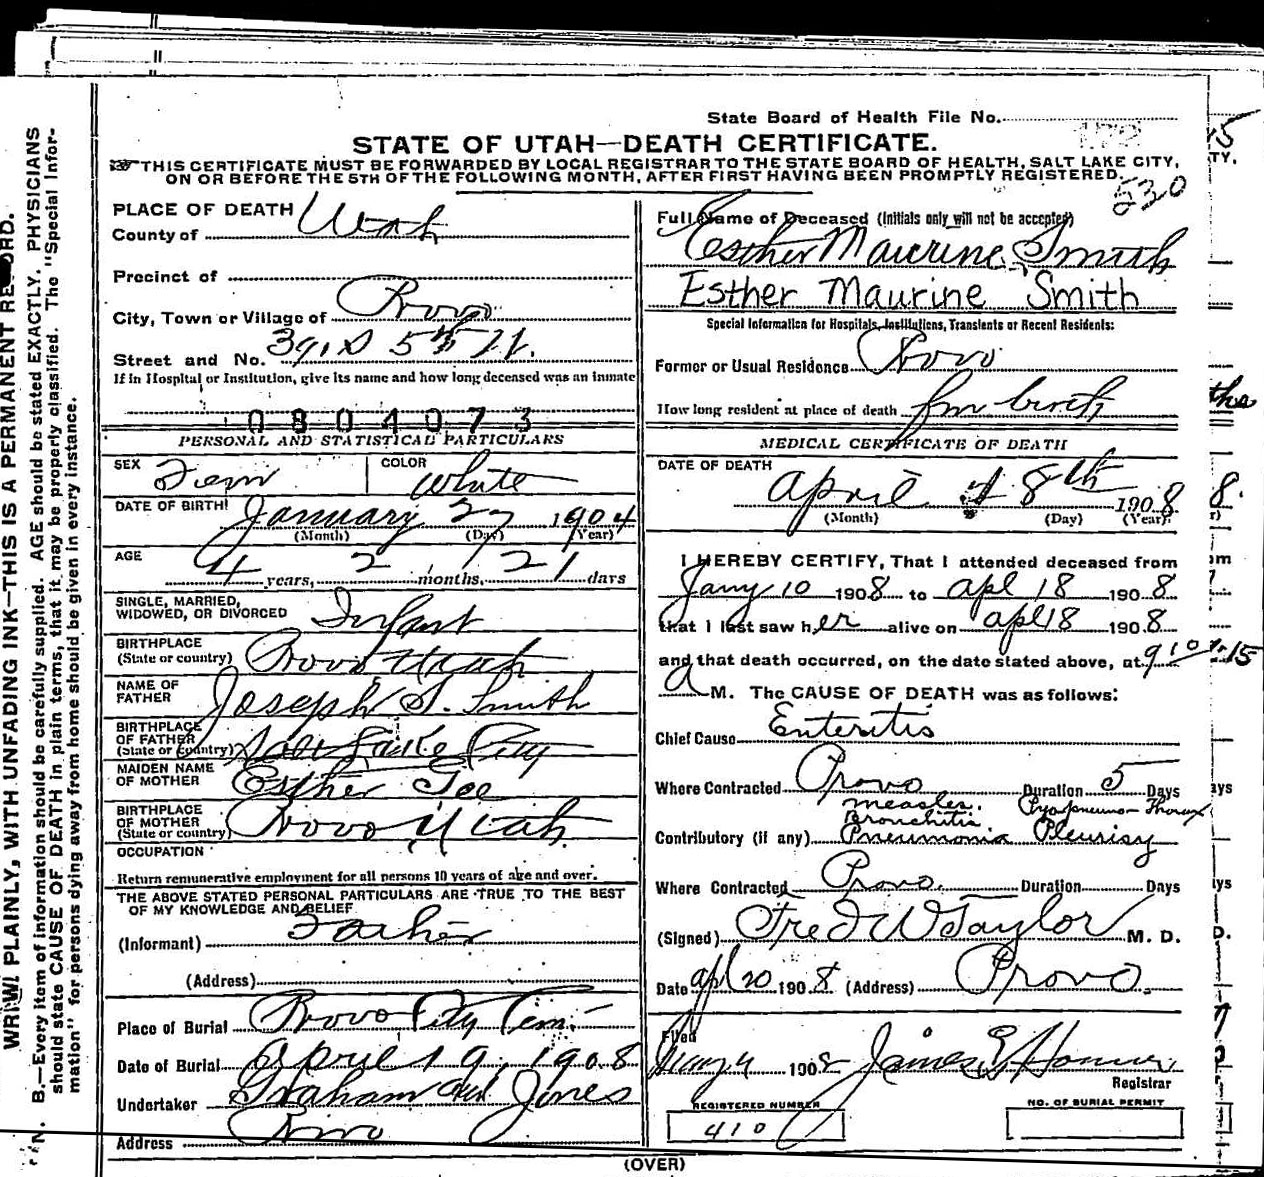 State Board of Health File No.
172
STATE OF UTAH—DEATH CERTIFICATE.
THIS CERTIFICATE MUST BE FORWARDED BY LOCAL REGISTRAR TO THE STATE BOARD OF HEALTH, SALT LAKE CITY,
ON OR BEFORE THE 5TH OF THE FOLLOWING MONTH, AFTER FIRST HAVING BEEN PROMPTLY REGISTERED.
530
PLACE OF DEATH
County of Utah
Precinct of
City, Town or Village of Provo
Street and No. 391 S 5th W.
If in Hospital or Institution, give its name and how long deceased was an inmate
0804073
PERSONAL AND STATISTICAL PARTICULARS
SEX Fem COLOR White
DATE OF BIRTH January 27 1904
(Month) (Day) (Year)
AGE 4 years, 2 months, 21 days
SINGLE, MARRIED,
WIDOWED, OR DIVORCED Infant
BIRTHPLACE
(State or country) Provo Utah
NAME OF
FATHER Joseph S. Smith
BIRTHPLACE
OF FATHER
(State or country) Salt Lake City
MAIDEN NAME
OF MOTHER Esther Gee
BIRTHPLACE
OF MOTHER
(State or country) Provo Utah
OCCUPATION
Return remunerative employment for all persons 10 years of age and over.
THE ABOVE STATED PERSONAL PARTICULARS ARE TRUE TO THE BEST
OF MY KNOWLEDGE AND BELIEF
(Informant) Father
(Address)
Place of Burial Provo City Cem.
Date of Burial April 19, 1908
Undertaker Graham and Jones
Address Provo
Full Name of Deceased (Initials only will not be accepted)
Esther Maurine Smith
Esther Maurine Smith
Special Information for Hospitals, Institutions, Transients or Recent Residents:
Former or Usual Residence Provo
How long resident at place of death from birth
MEDICAL CERTIFICATE OF DEATH
DATE OF DEATH April 18th 1908
(Month) (Day) (Year)
I HEREBY CERTIFY, That I attended deceased from
Jany 10 1908 to apl 18 1908
that I last saw her alive on apl 18 1908
and that death occurred, on the date stated above, at 9 10
a M. The CAUSE OF DEATH was as follows:
Chief Cause Enteritis
Where Contracted Provo Duration 5 Days
measles. Pyopneumo-Thorax
Bronchitis
Contributory (if any) Pneumonia Pleurisy
Where Contracted Provo. Duration Days
(Signed) Fred W Taylor M. D.
Date apl 20 1908 (Address) Provo.
Filed
May 4 1908 James E Homer
Registrar
REGISTERED NUMBER
410
NO. OF BURIAL PERMIT
(OVER)
WRITE PLAINLY, WITH UNFADING INK—THIS IS A PERMANENT RECORD.
N. B.—Every item of information should be carefully supplied. AGE should be stated EXACTLY. PHYSICIANS
should state CAUSE OF DEATH in plain terms, that it may be properly classified. The "Special Infor-
mation" for persons dying away from home should be given in every instance.